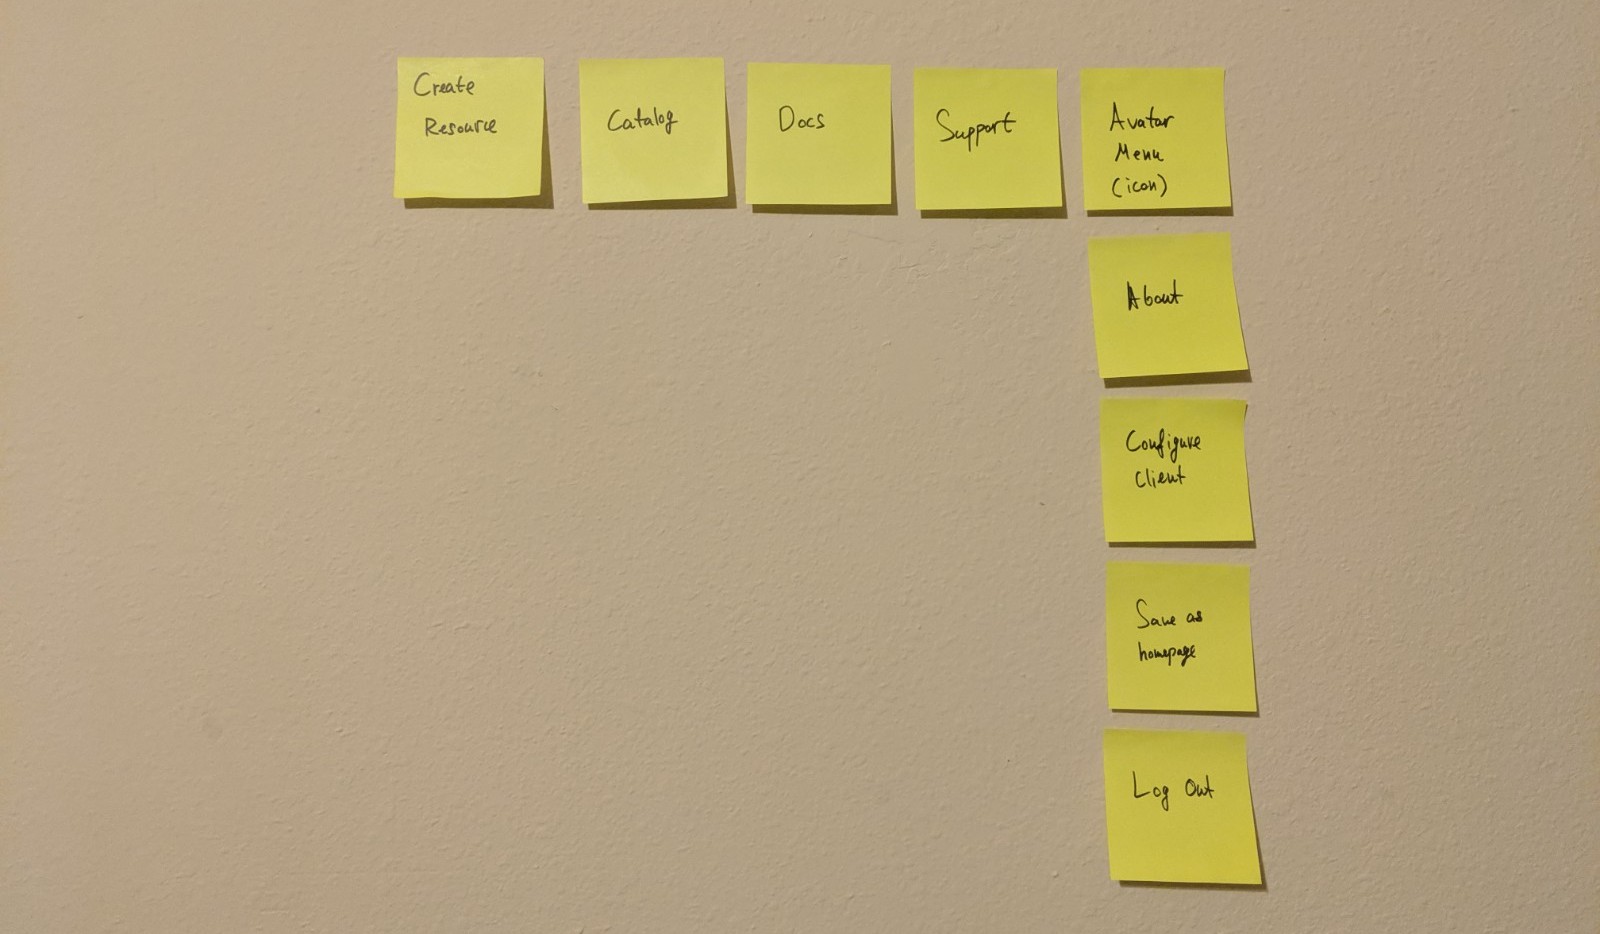 Create
Resource
Catalog
Docs
Support
Avatar
Menu
(icon)
About
Configure
Client
Save as
homepage
Log Out